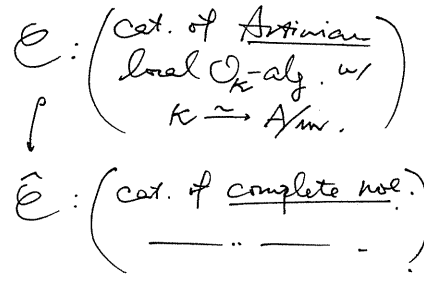 C : ( cat. of Artinian
local O_K-alg. w/
K ≃→ A/m. )
Ĉ : ( cat. of complete noe.
—— ‥ —— - . )